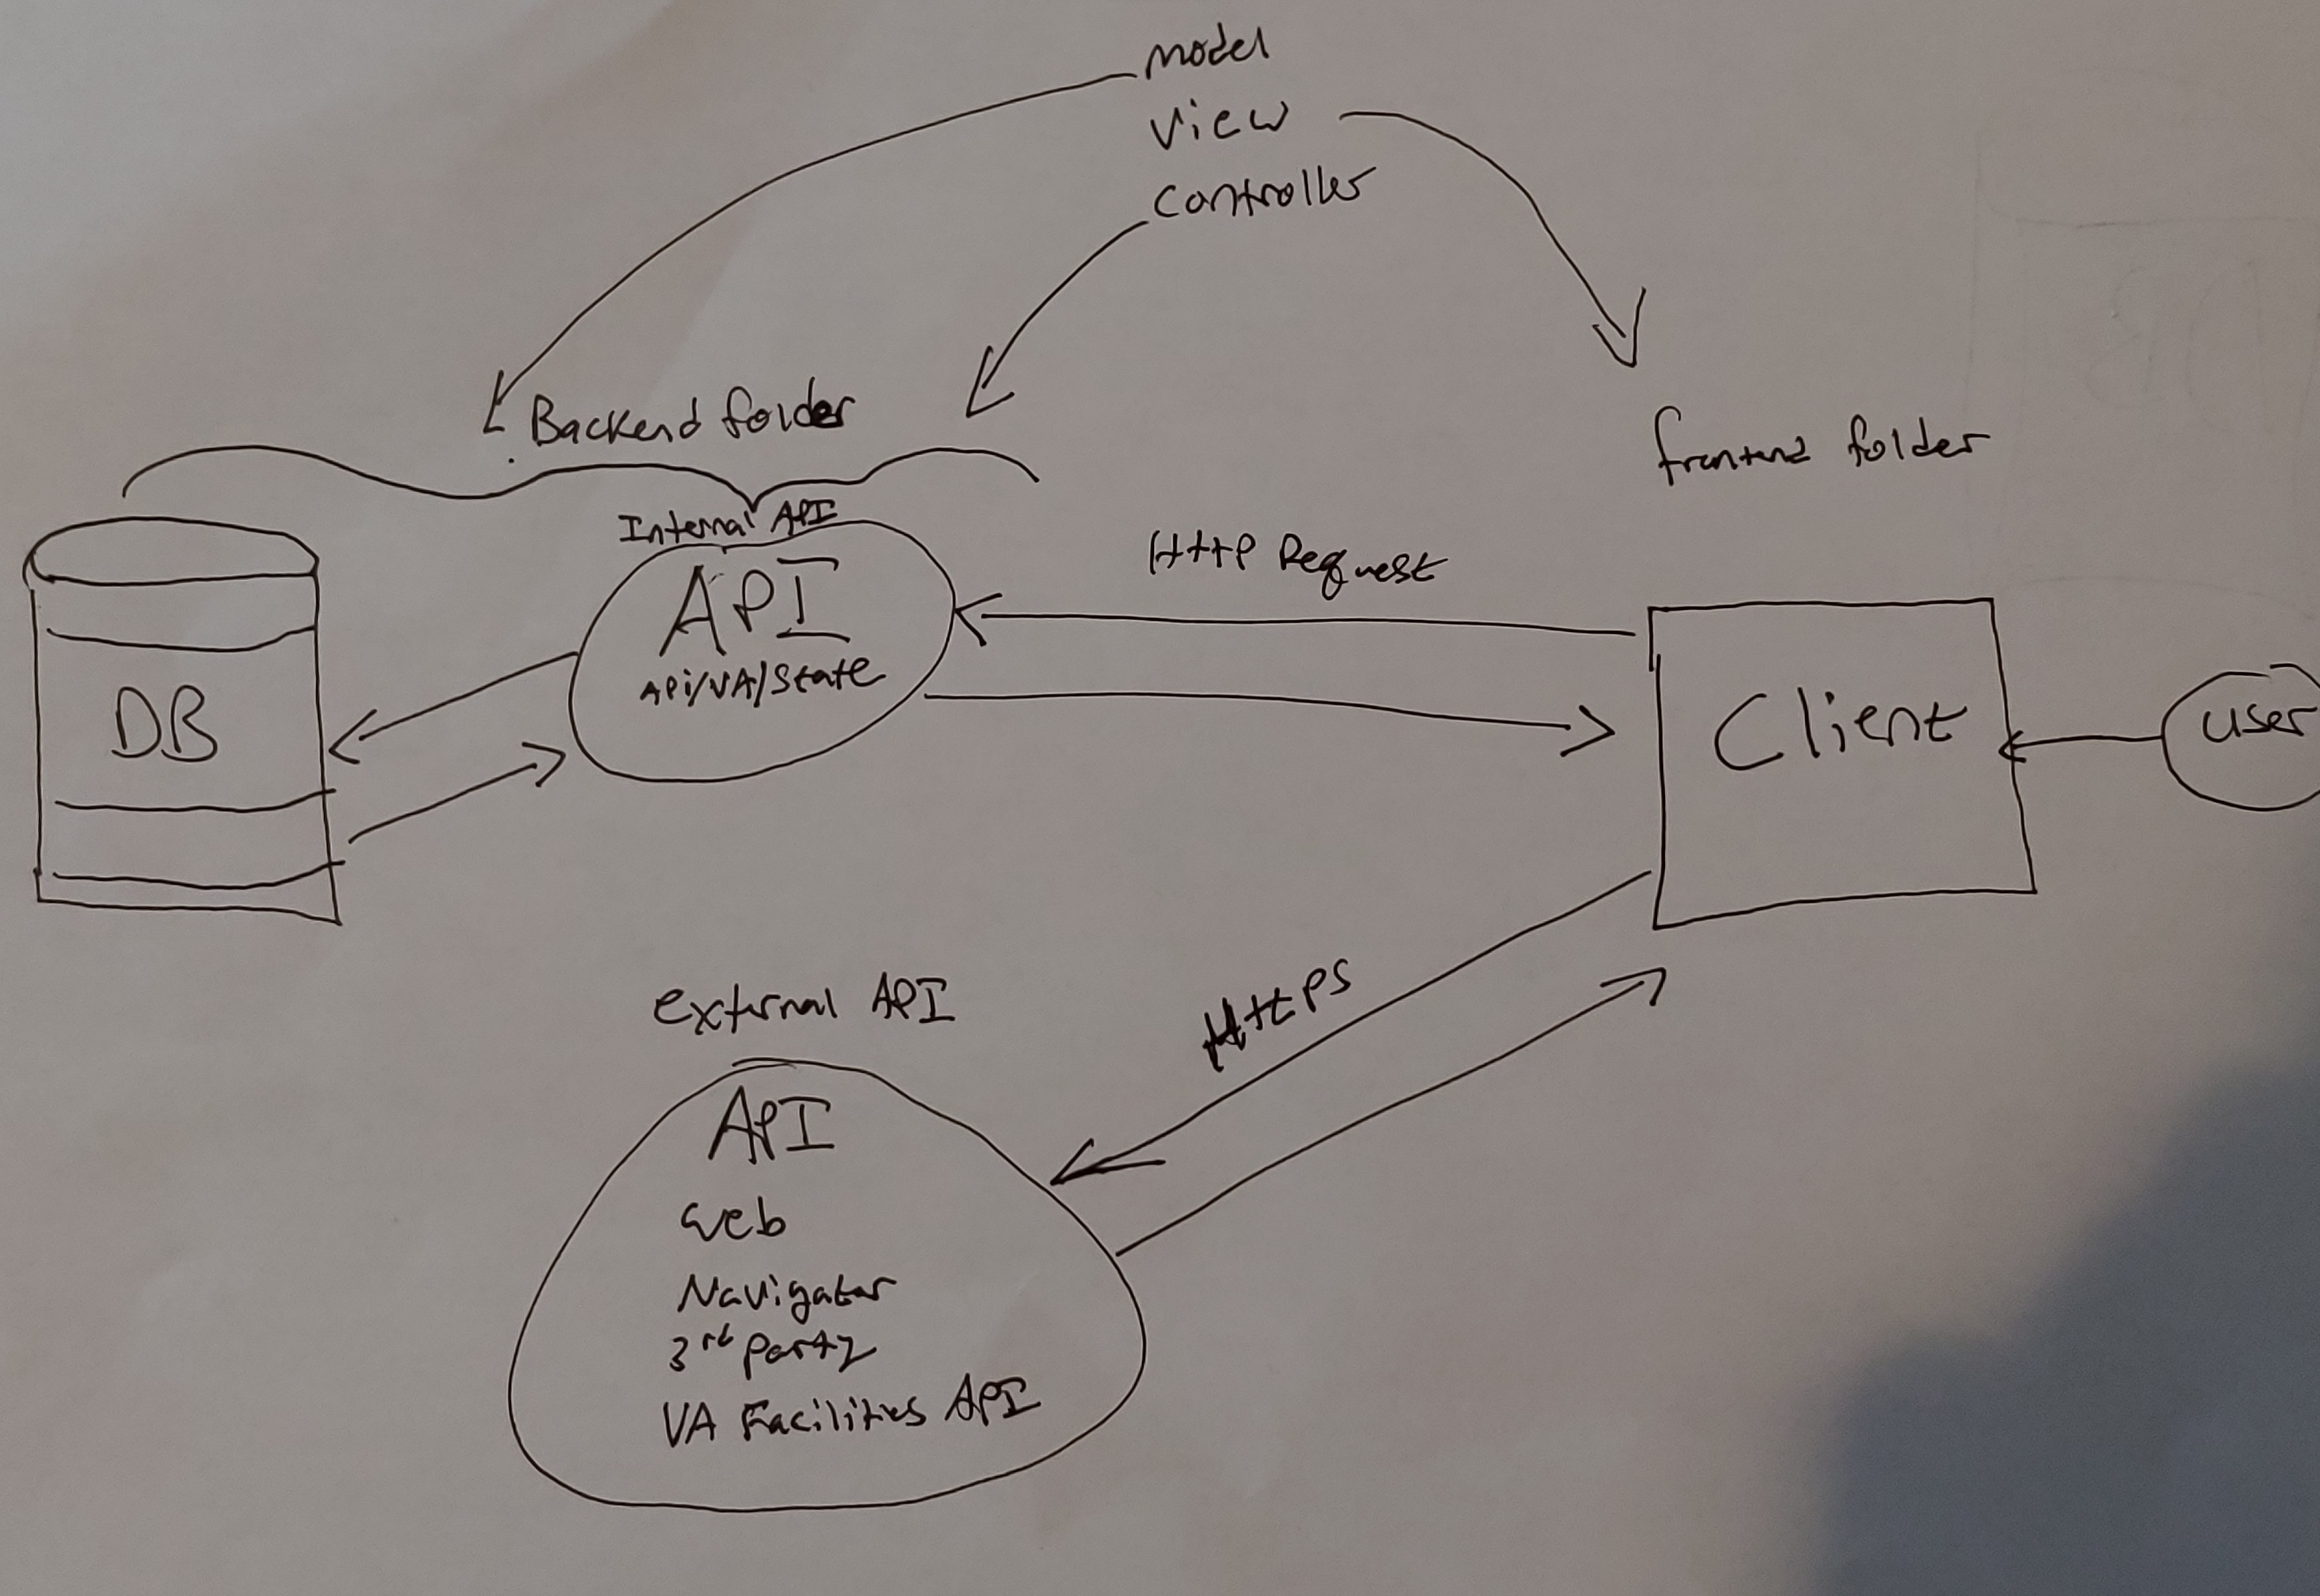 model
view
controller
Backend folder
frontend folder
Internal API
HTTP Request
API
Api/VA/State
DB
Client
user
external API
HTTPS
API
Web
Navigator
3rd party
VA Facilities API